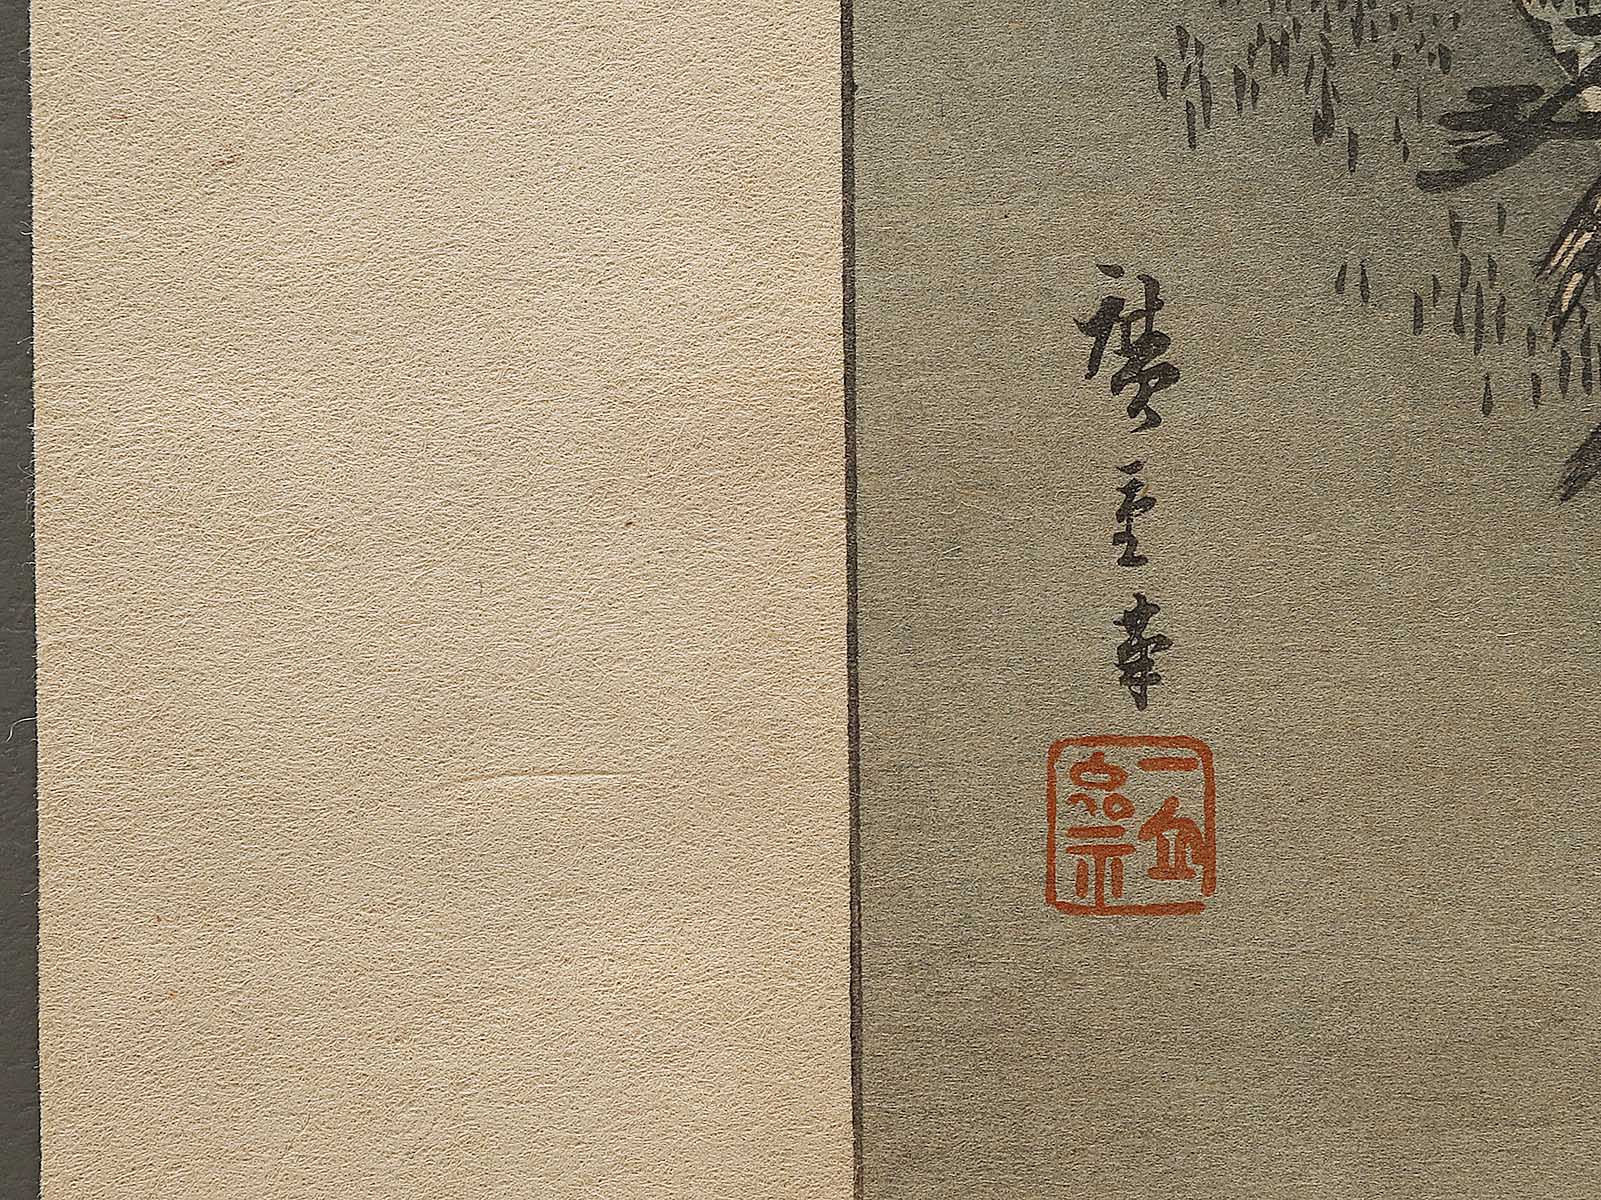 廣重筆
一立
齋